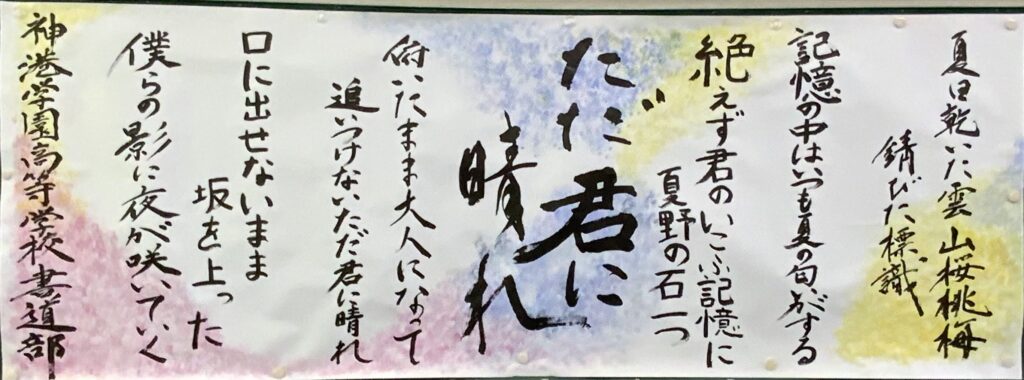 夏日乾いた雲 山桜桃梅
錆びた標識
記憶の中はいつも夏の匂いがする
絶えず君のいこふ記憶に
夏野の石一つ
ただ君に
晴れ
俯いたまま大人になって
追いつけないただ君に晴れ
口に出せないまま
坂を上った
僕らの影に夜が咲いていく
神港学園高等学校書道部